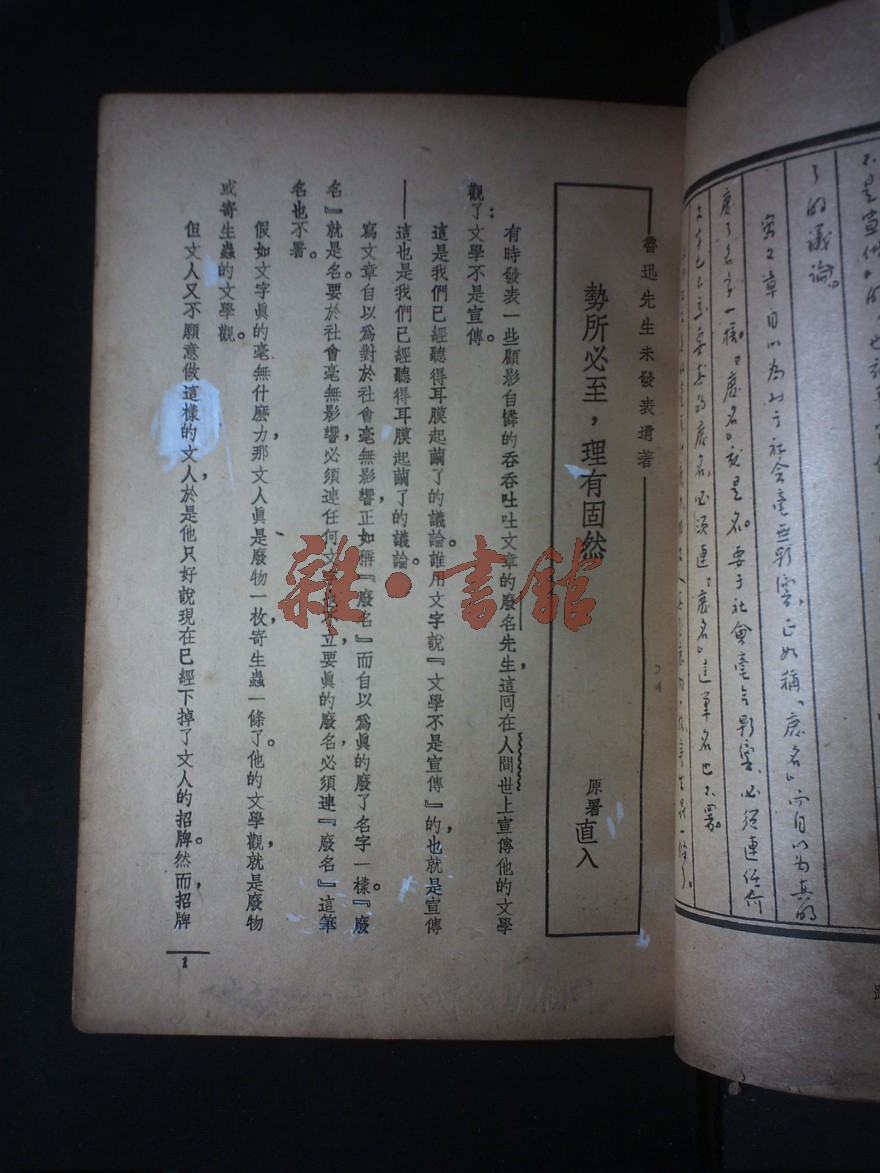 不是宣傳』的，也就是宣傳
了的議論。
寫文章自以为对于社会毫無影響，正如稱「廢名」而自以为真的
廢了名字一樣。「廢名」就是名。要于社會毫無影響，必須連任何
文字也不立，要真的廢名，必須連「廢名」這筆名也不署。
魯迅先生未發表遺著
勢所必至，理有固然
原署 直入
有時發表一些顧影自憐的吞吞吐吐文章的廢名先生，這回在人間世上宣傳他的文學
觀了：文學不是宣傳。
這是我們已經聽得耳膜起繭了的議論。誰用文字說『文學不是宣傳』的，也就是宣傳
——這也是我們已經聽得耳膜起繭了的議論。
寫文章自以爲對於社會毫無影響，正如稱『廢名』而自以爲眞的廢了名字一樣。『廢
名』就是名。要於社會毫無影響，必須連任何文字也不立，要眞的廢名，必須連『廢名』這筆
名也不署。
假如文字眞的毫無什麽力，那文人眞是廢物一枚，寄生蟲一條了。他的文學觀，就是廢物
或寄生蟲的文學觀。
但文人又不願意做這樣的文人，於是他只好說現在已經下掉了文人的招牌。然而，招牌
1
雜·書館